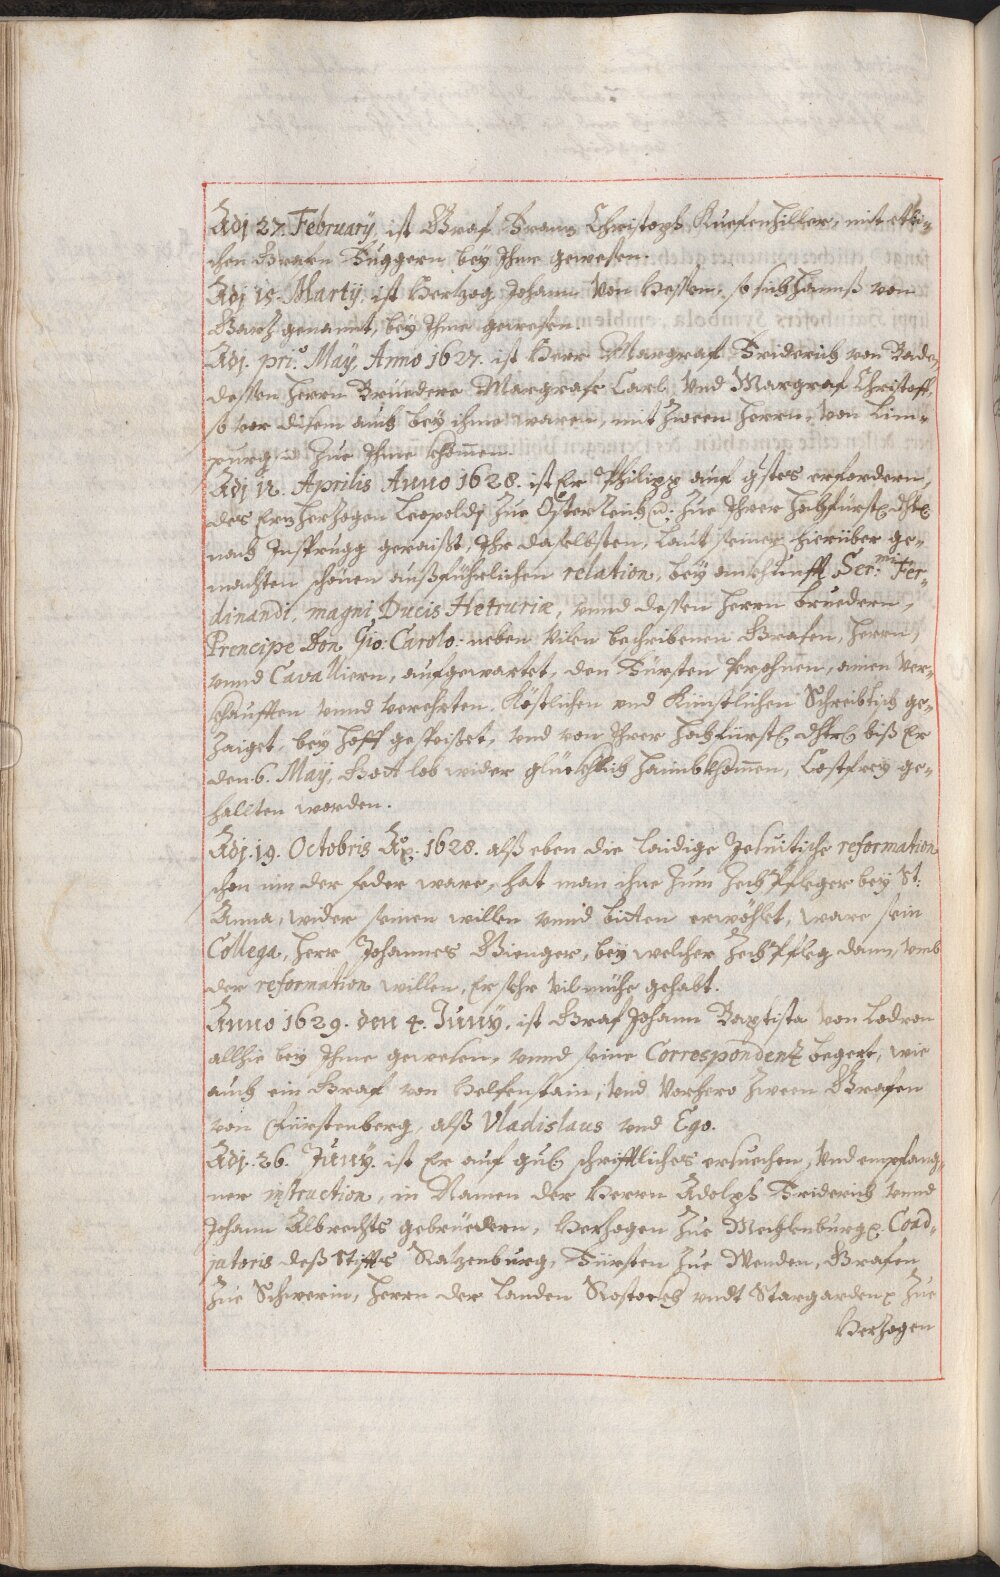 Adj 27. February, ist Graf Franz Christoph Kuefenhiller, mit etli-
chen Grafen Fuggern, bey Ihme gewesen.
Adj 15. Martij, ist Hertzog Johann von Hessen, so sich Hannß von
Harz genannt, bey Ihme gewesen.
Adj. pri.º May, Anno 1627. ist Herr Margraf Friderich von Baden,
dessen Herrn Bruedere Margraf Carl vnd Margraf Christoff,
so vor disem auch bey ihme waren, mit zween Herrn von Lim-
purg zue Ihme khommen.
Adj 12. Aprilis Anno 1628. ist Er Philipp auf gstes erfordern,
des Erzherzogen Leopoldj zue Österreich zue Ihrer hochfürstl. dhtl.
nach Insprugg geraißt, Ihr daselbsten, laut seiner hierüber ge-
machten schönen außführlichen relation, bey ankhunfft Ser:mi Fer-
dinandi, magni Ducis Hetruriæ, vnnd dessen Herrn bruedern,
Prencipe Don Gio: Carolo: neben vilen beschribenen Grafen, Herrn,
vnnd Cavalliern, aufgewartet, den Fürsten Persohnen, ainen ver-
khaufften vnnd verehrten, Köstlichen vnd Künstlichen Schreibtisch ge-
zaiget, bey hoff gespeißet, vnd von Ihrer hochfürstl. dhtl. biß Er
den 6. May, Gott lob wider glücklich haimbkhommen, Costfrey ge-
hallten worden.
Adj. 19. Octobris Aº. 1628. alß eben die laidige Jesuitische reformation
schon inn der feder ware, hat man ihne zum Zechpfleger bey St:
Anna, wider seinen willen vnnd bitten erwöhlet, ware sein
Collega, Herr Johannes Bienger, bey welcher Zechpfleg dann, vmb
der reformation willen, Er sehr vil mühe gehabt.
Anno 1629. den 4. Juny, ist Graf Johann Baptista von Lodron
allhie bey Ihme gewesen, vnnd seine Correspondenz begert, wie
auch ein Graf von Helfenstain, vnd vorhero zween Grafen
von Fürstenberg, alß Vladislaus vnd Ego.
Adj. 26. Juny. ist Er auf schrifftliches ersuechen, vnd empfang-
ner instruction, in Namen der Herrn Adolph Friderich vnnd
Johann Albrechts gebrüedern, Herzogen zue Mechlenburg, Coad-
jutoris deß Stiffts Ratzenburg, Fürsten zue Wenden, Grafen
zue Schwerin, Herrn der Landen Rostockh vndt Stargarden zue
Herzogen